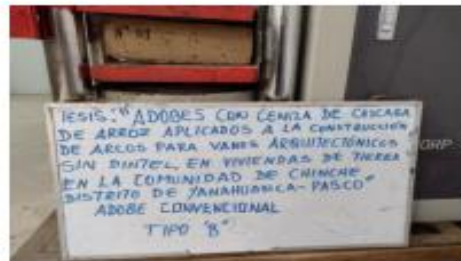 Nº 03
TESIS: "ADOBES CON CENIZA DE CASCARA
DE ARROZ APLICADOS A LA CONSTRUCCIÓN
DE ARCOS PARA VANOS ARQUITECTÓNICOS
SIN DINTEL, EN VIVIENDAS DE TIERRA
EN LA COMUNIDAD DE CHINCHE
DISTRITO DE YANAHUANCA-PASCO"
ADOBE CONVENCIONAL
TIPO "B"
ORP